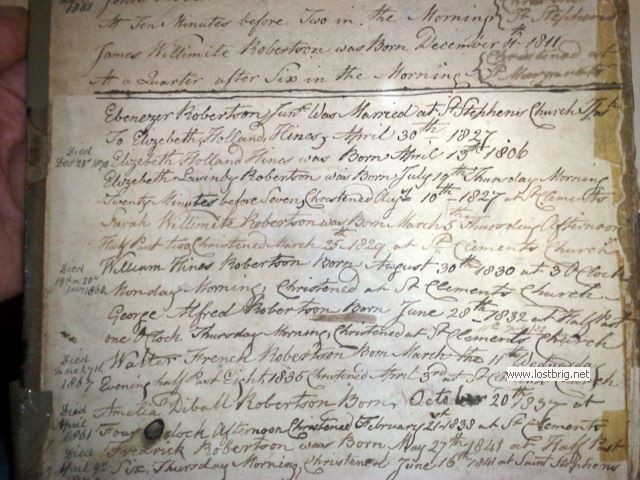 1881
At Ten Minutes before Two in the Morning St Stephens
James Willimite Robertson was Born December 4th 1811 Christined at
At a Quarter after Six in the Morning St Margarets
Ebenezer Robertson Junr Was Married at St Stephens Church
To Elizebeth Holland Hines, April 30th 1827
Died
Decr 28th 1870 Elizebeth Holland Hines was Born April 13th 1806
Elizebeth Robertson was Born July 19th Thursday Morning
Twenty Minutes before Seven, Christened Augst 10th 1827 at St Clements
Sarah Willimite Robertson was Born March 5th Thursday Afternoon
Half Past two Christened March 25th 1829 at St Clements Church
Died
Janry 1860 William Hines Robertson Born August 30th 1830 at 3 O Clock
Monday Morning Christened at St Clements Church
George Alfred Robertson Born June 28th 1832 at Half Past
one O Clock Thursday Morning, Christened at St Clements Church
Died
March 7th
1867
Walter French Robertson Born March the 11th Wednesday
Evening half Past Eight, 1835 Christened April 3rd at St Clements Church
www.lostbrig.net
Died
April
1861
Amelia Diball Robertson Born October 20th 1837 at
Four O Clock Afternoon Christened February 21st 1838 at St Clements
Died
April 9th
Fredrick Robertson was Born May 27th 1841 at Half Past
Six Thursday Morning, Christened June 16th 1841 at Saint Stephens